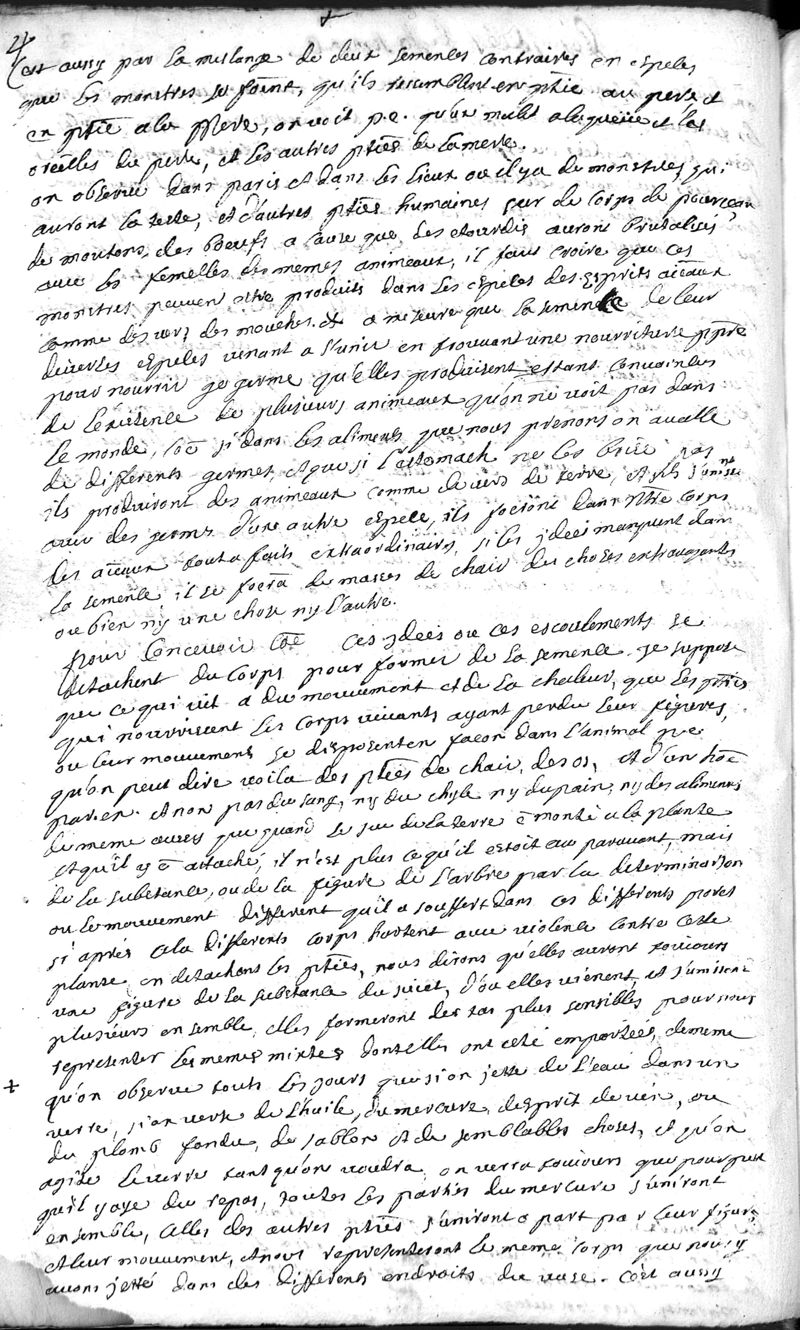 24
C'est aussy par la meslange de deux semences contraires en especes
que les monstres se font, qu'ils resemblent en ptie au pere et
en ptie a la mere, on voit p.e. qu'un mulet a la queüe et les
oreilles du pere, et les autres pties de la mere.
on observe dans paris et dans les lieux ou il y a de monstres, qui
auront la teste, et d'autres pties humaines sur de corps de pourceau,
de moutons, des boeufs a cause que des etourdis auront brutalisés
avec les femelles des memes animeaux, il faut croire que ces
monstres peuven etre produits dans les especes des esprits aiaux
comme des vers des mouches. et a mesure que la semence de leur
diverses especes vienant a s'unir en trouvant une nourriture ppre
pour nourrir ge germe qu'elles produisent estant convaincus
de l'existence de plusieurs animeaux qu'on ne voit pas dans
le monde, coe si dans les aliments que nous prenons on avalle
de differents germes, et que si l'esttomach ne les brise pas
ils produiront des animeaux comme de vers de terre, et s'ils s'unissent
avec des germes d'une autre espece, ils feront dans ntre corps
des aiaux tout a faits extraordinaires, si les jdees manquent dans
la semence il se fera de masses de chair des choses extravagantes
ou bien n'y une chose n'y l'autre.
pour concevoir coe ces jdees ou ces escoulements se
detachent du corps pour former de la semence. je suppose
que ce qui vit a du mouvement et de la chaleur, que les pties
qui nourrissent les corps vivants ayant perdu leur figures,
ou leur mouvement se disposent en facon dans l'animal que
qu'on peut dire voila des pties de chair, des os, et d'un hoe
par.en. et non pas du sang, n'y du chyle n'y du pain, n'y des aliments
de meme aussy que quand le suc de la terre e monté a la plante
et qu'il y e attaché, il n'est plus ce qu'il estoit au paravant, mais
de la substance, ou de la figure de l'arbre par la determination
ou le mouvement different qu'il a souffert dans ces differents pores
si aprés cela differents corps hurtent avec violence contre cette
plante en detachant les pties, nous dirons qu'elles auront toujours
une figure de la substance du sujet, d'ou elles vienent, et s'unissent
plusieurs ensemble, elles formeront des tas plus sensibles pour nous
representer les memes mixtes dont elles ont eté emportées, de meme
+ qu'on observe touts les jours que si on jette de l'eau dans un
verre, si on verse de l'huile, du mercure, d'esprit de vin, ou
du plomb fondu, de sablon et de semblables choses, et qu'on
agite le verre tant qu'on voudra, on verra toujours que pour peu
qu'il y aye du repos, toutes les parties du mercure s'uniront
ensemble, celles des autres pties s'uniront a part par leur figure,
et leur mouvement, et nous representeront le meme corps que nous y
avons jetté dans des differents endroits du vase. c'est aussy